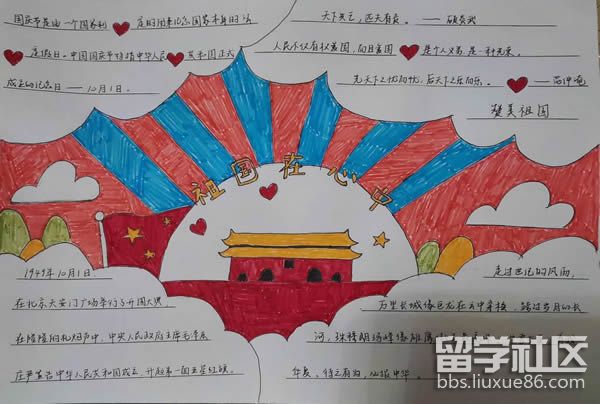 国庆节是由一个国家制
定的用来纪念国家本身的法
定假日。中国国庆节特指中华人民
共和国正式
成立的纪念日——10月1日。
天下兴亡，匹夫有责。——顾炎武
人民不仅有权爱国，而且爱国
是个义务，是一种光荣。
先天下之忧而忧，后天下之乐而乐。
——范仲淹
赞美祖国
祖国在心中
1949年10月1日
在北京天安门广场举行了开国大典
在隆隆的礼炮声中，中央人民政府主席毛泽东
庄严宣告中华人民共和国成立，升起第一面五星红旗。
走过世纪的风雨，
万里长城像巨龙在云中穿梭，跨过岁月的长
河，珠穆朗玛峰像雄鹰
华夏、待之有为，
中华。
留学社区
bbs.liuxue86.com